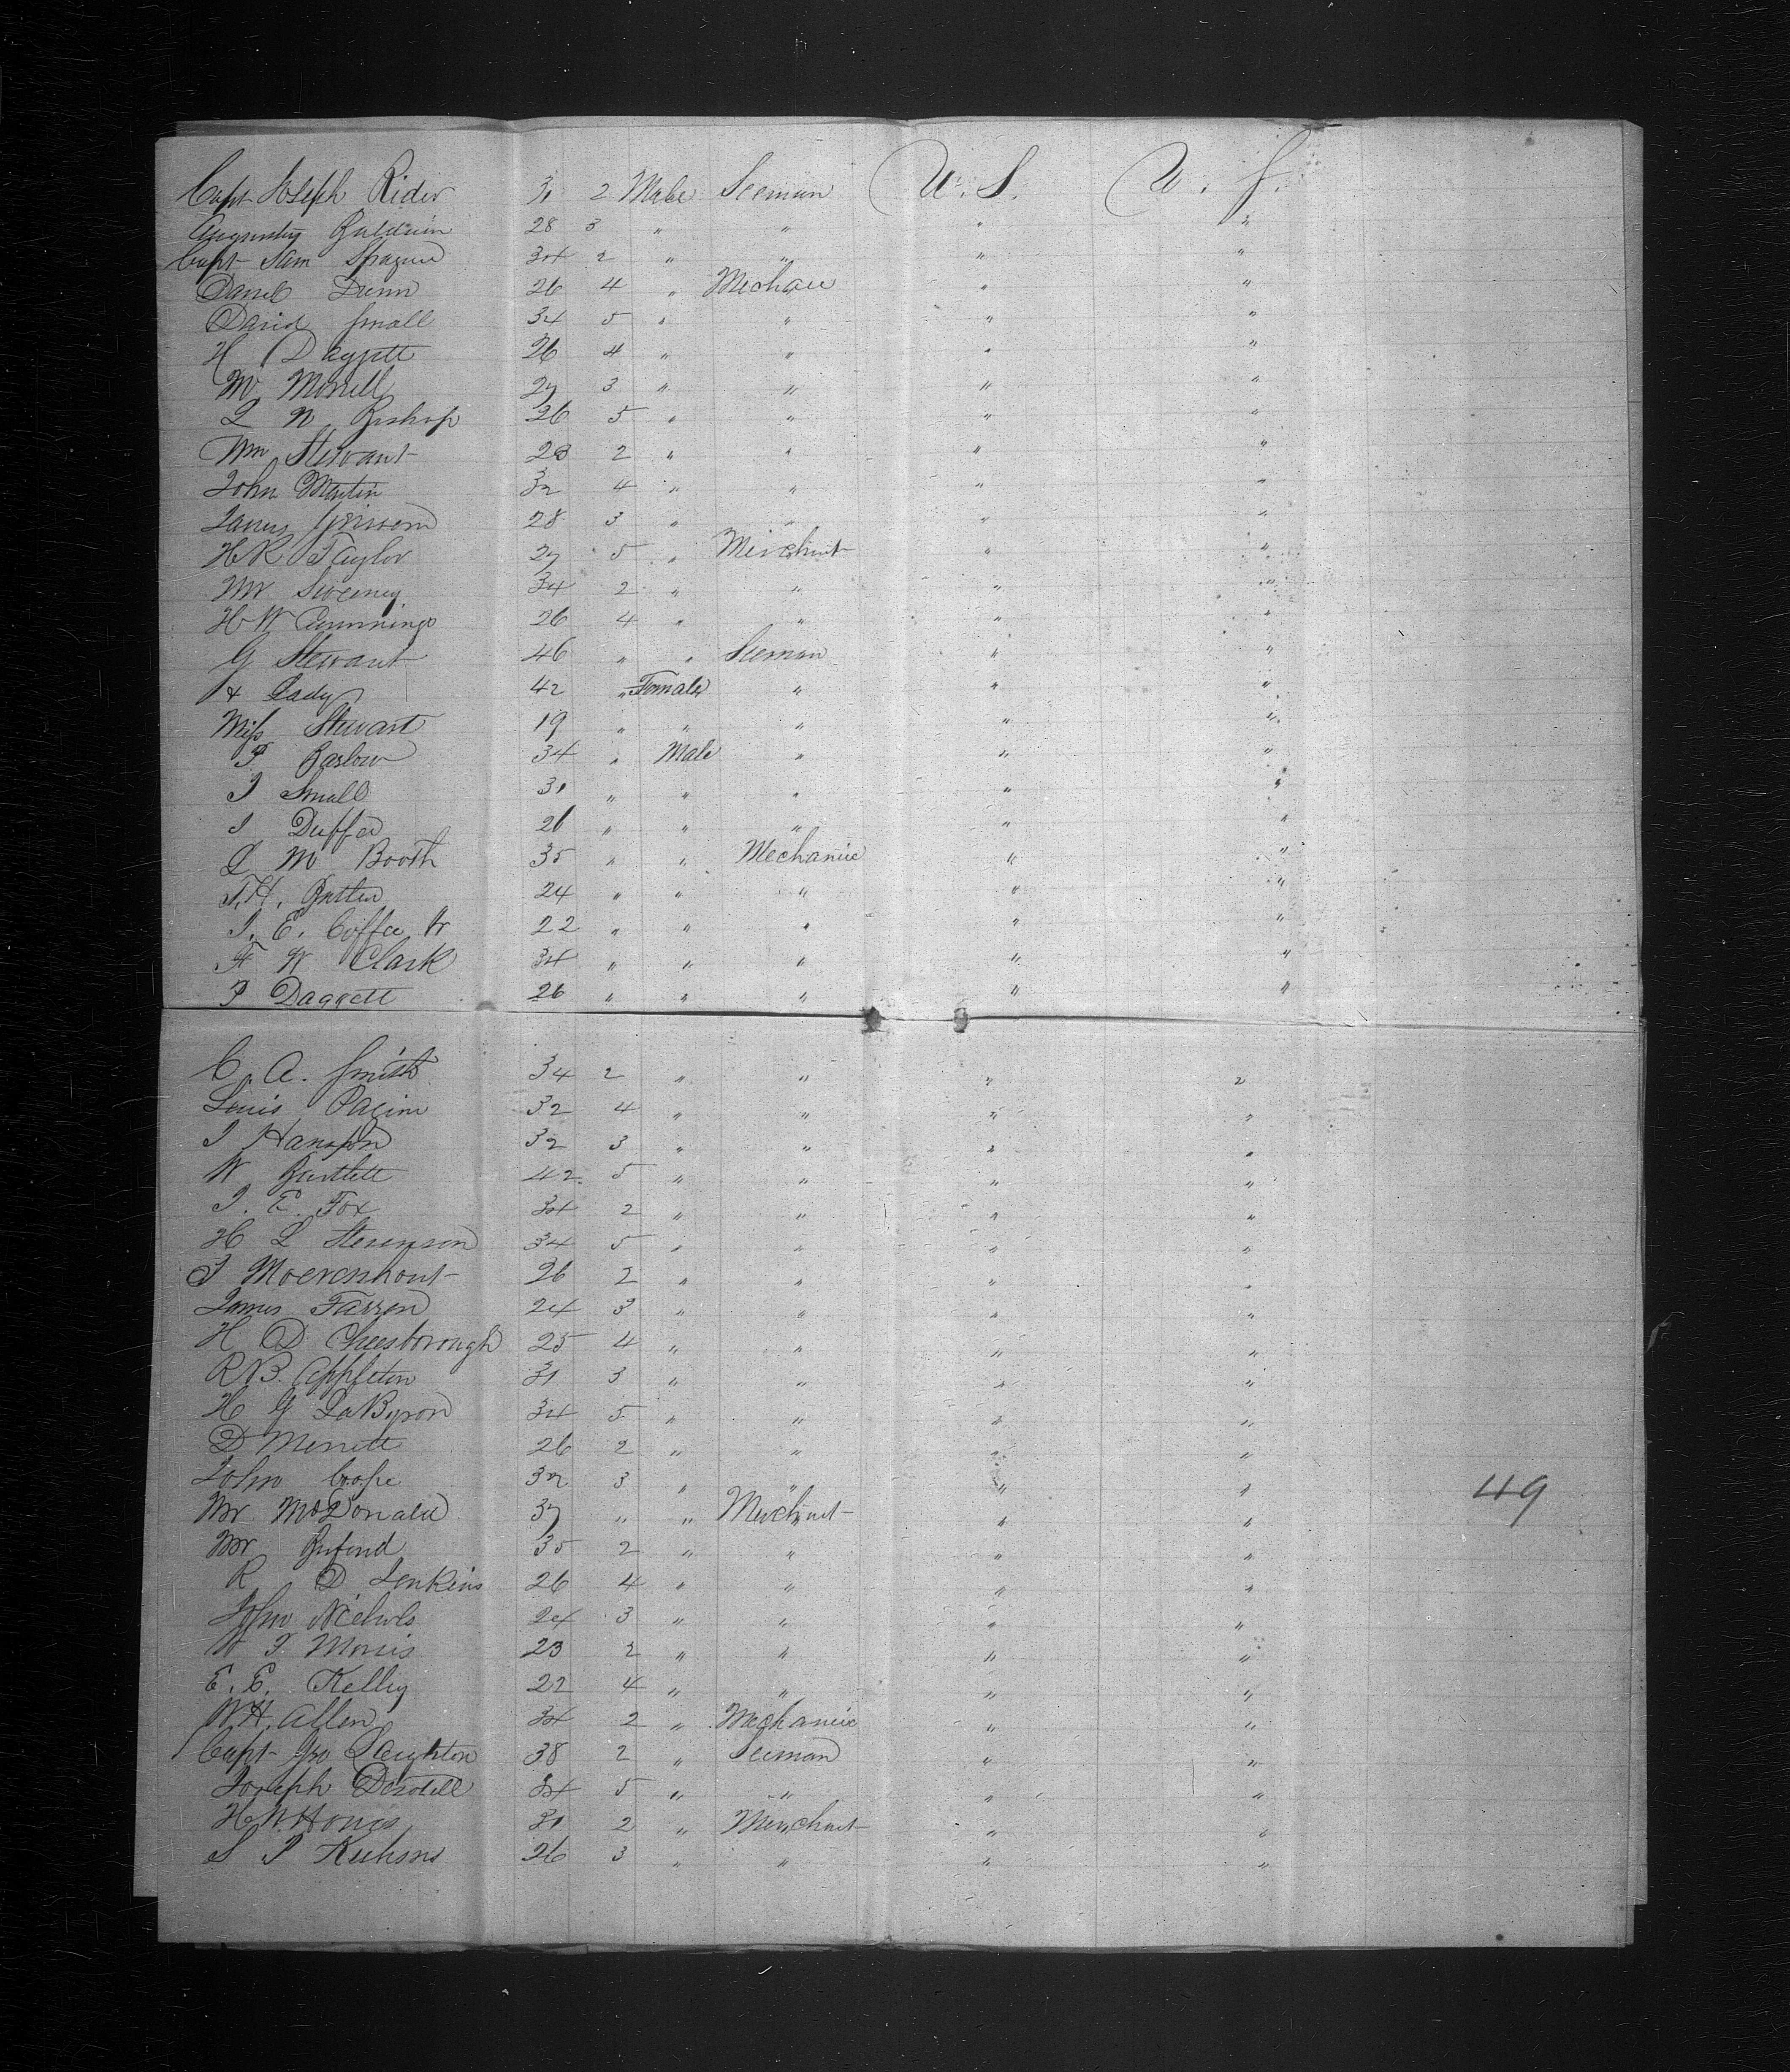 Capt Joseph Rider 31 2 Male Seeman U.S. U.S.
Baldwin 28 3 " " " "
Capt Sam Sprague 34 2 " " " "
Daniel Dunn 26 4 " Mechanic " "
David Small 34 5 " " " "
H Daggett 26 4 " " " "
Mr Morrell 27 3 " " " "
L N Bishop 26 5 " " " "
Wm Stewart 28 2 " " " "
John Martin 32 4 " " " "
James 28 3 " " " "
H R Taylor 27 5 " Merchant " "
Mr Sweeney 34 2 " " " "
H W Cummings 26 4 " " " "
G Stewart 46 " " Seeman " "
& Lady 42 " Female " " "
Miss Stewart 19 " " " " "
P Barlow 34 " Male " " "
J Small 31 " " " " "
J 26 " " " " "
L M Booth 35 " " Mechanic " "
J. H. 24 " " " " "
J. E. Coffee Jr 22 " " " " "
F W Clark 34 " " " " "
P Daggett 26 " " " " "
C. A. Smith 34 2 " " " "
Louis 32 4 " " " "
J Hanson 32 3 " " " "
W Bartlett 42 5 " " " "
J. E. Fox 34 2 " " " "
H L Stevenson 34 5 " " " "
J Moerenhout 26 2 " " " "
James Farren 24 3 " " " "
H D Cheesborough 25 4 " " " "
R B. Appleton 31 3 " " " "
H G LaByron 34 5 " " " "
D Merrett 26 2 " " " "
John Cope 32 3 " " " "
Mr McDonald 37 " " Merchant " " 49
Mr 35 2 " " " "
R D Jenkins 26 4 " " " "
John Nichols 24 3 " " " "
W J Morris 23 2 " " " "
E. E. Kelley 22 4 " " " "
W H. Allen 34 2 " Mechanic " "
Capt Jno Leighton 38 2 " Seeman " "
Joseph 34 5 " " " "
H W 31 2 " Merchant " "
S P 26 3 " " " "